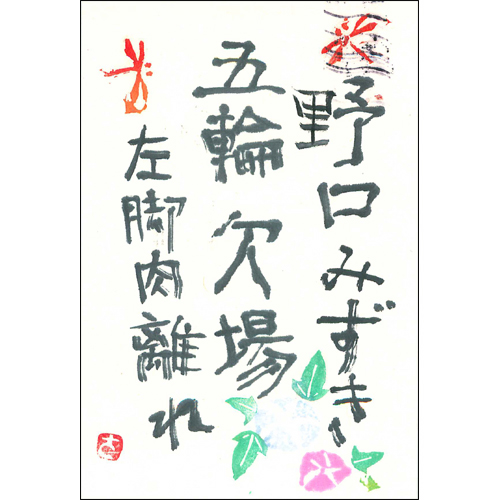 野口みずき
五輪欠場
左脚肉離れ